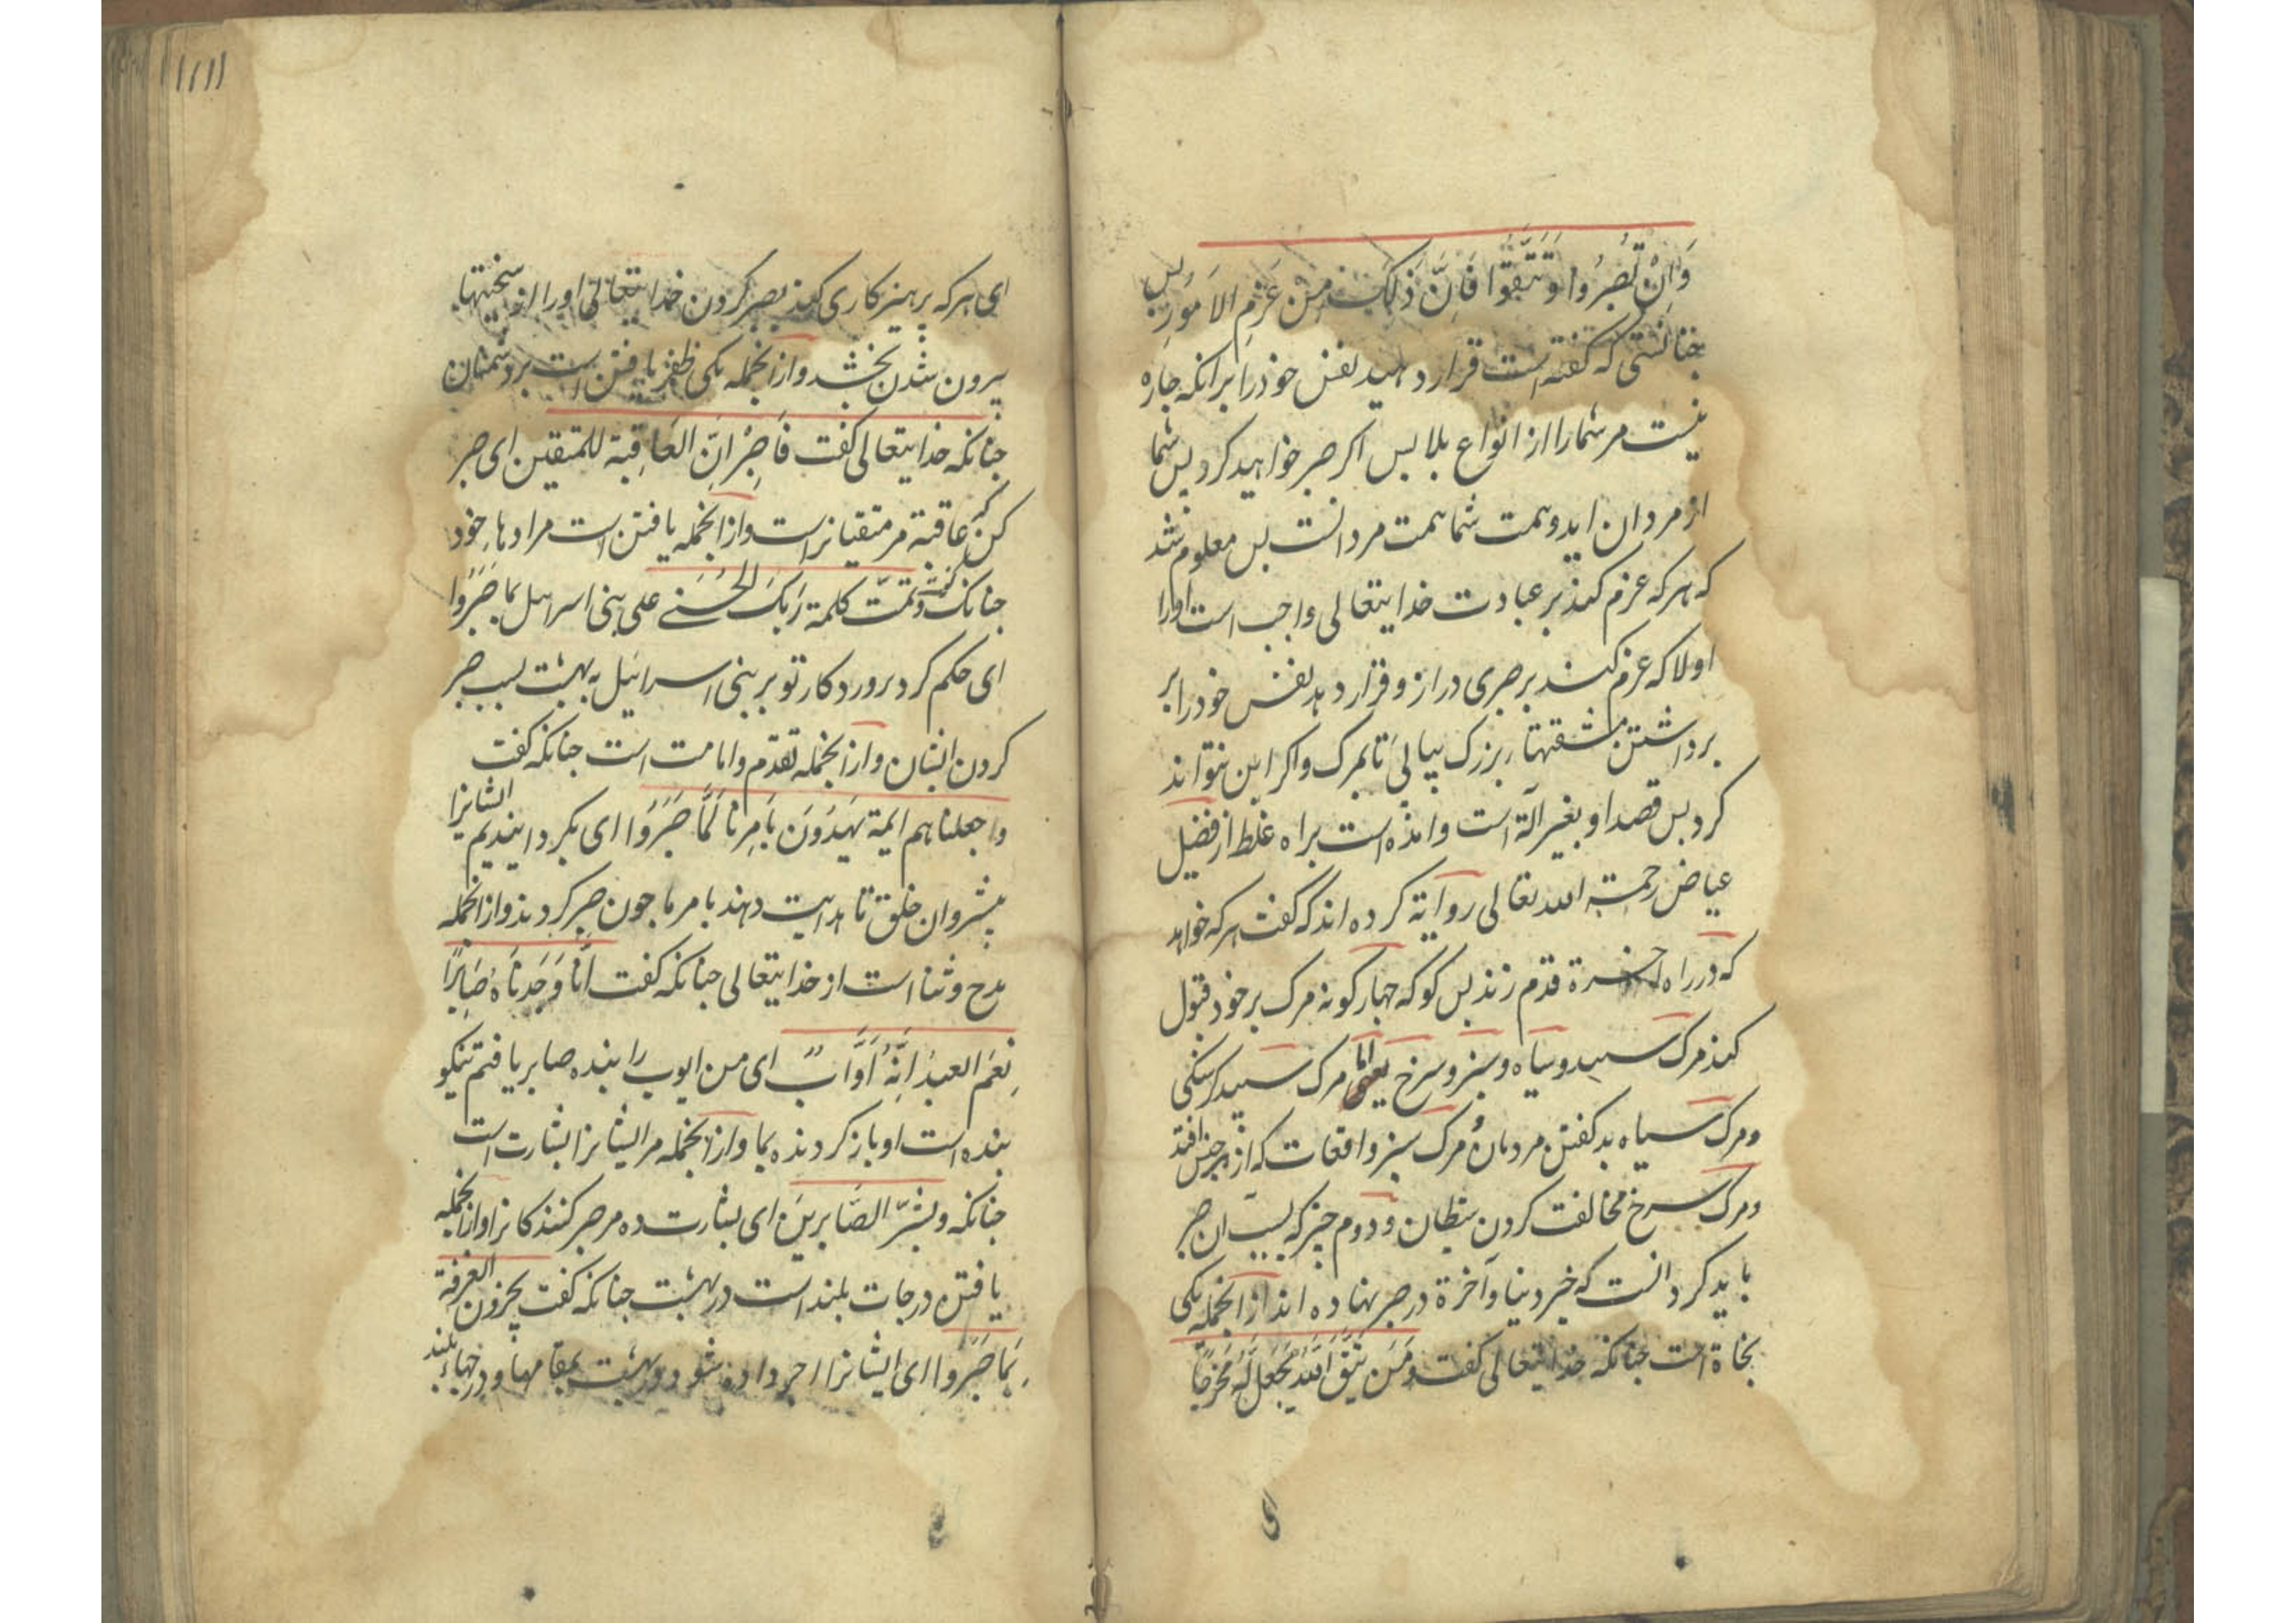 وَاِنْ تَصْبِرُوا وَتَتَّقُوا فَاِنَّ ذَلِكَ مِنْ عَزْمِ الاَمُورِ پس
چنانستی که گفته است قرار دهید نفس خود را برانکه چاره
نیست مر شمارا از انواع بلا پس اکر صبر خواهید کرد پس شما
از مردان اید وهمت شما همت مردانست پس معلوم شد
که هرکه عزم کند بر عبادت خدایتعالی واجب است اورا
اولا که عزم کند بر صبری دراز و قرار دهد نفس خود را بر
برداشتن مشقتهاء بزرک پیاپی تا بمرک واکر این نتواند
کرد پس قصد او بغیر آلة است وامذه است براه غلط از فضیل
عیاض رحمة الله تعالی روایة کرده اند که گفت هرکه خواهد
که در راه اخرة قدم زند پس کو که چهار کونه مرک بر خود قبول
کند مرک سپید وسیاه وسبز وسرخ اما مرک سپید کرسنکی
ومرک سیاه بد کفتن مردمان و مرک سبز واقعات که از هر جنس افتد
ومرک سرخ مخالفت کردن شیطان ودوم چیز که بسبب ان صبر
باید کرد انست که خیر دنیا وآخرة در صبر نهاده اند از انجمله یکی
نجاة است چنانکه خدایتعالی کفت وَمَن یَتَّقِ اللهَ یَجْعَلْ لَهُ مَخْرَجًا
ای هرکه پرهیزکاری کند بصبر کردن خدایتعالی اورا از سختیها
بیرون شدن بخشد وازانجمله یکی ظفر یافتن است بر دشمنان
چنانکه خدایتعالی کفت فَاصْبِرْ اِنَّ العَاقِبَة للمتقین ای صبر
کن که عاقبة مر متقیانراست وازانجمله یافتن است مرادهاء خود
چنانک کفت وَتَمَّت کلمة رَبِّکَ الحُسْنَی علی بنی اسرایل بِمَا صَبَرُوا
ای حکم کرد پروردکار تو بر بنی اسرائیل به بهشت بسبب صبر
کردن ایشان وازانجمله تقدم وامامت است چنانکه کفت
واجعلناهم ایمة یَهْدُونَ بِاَمْرِنَا لَمَّا صَبَرُوا ای بکردانیدیم ایشانرا
پیشروان خلق تا هدایت دهند بامر ما چون صبر کردند وازانجمله
مدح وثنا است از خدایتعالی چنانکه کفت اِنَّا وَجَدْنَاهُ صَابِرًا
نِعْمَ العبدُ اِنَّهُ اَوَّابٌ ای من ایوب را بنده صابر یافتم نیکو
بنده است او باز کردنده بما وازانجمله مر ایشانرا بشارت است
چنانکه وبَشِّرِ الصَّابِرِینَ ای بشارت ده مر صبر کنندکانرا وازانجمله
یافتن درجات بلند است در بهشت چنانکه کفت یجزون الغرفة
بِمَا صَبَرُوا ای ایشانرا اجر داده شود در بهشت بمقامها ودرجهاء بلند